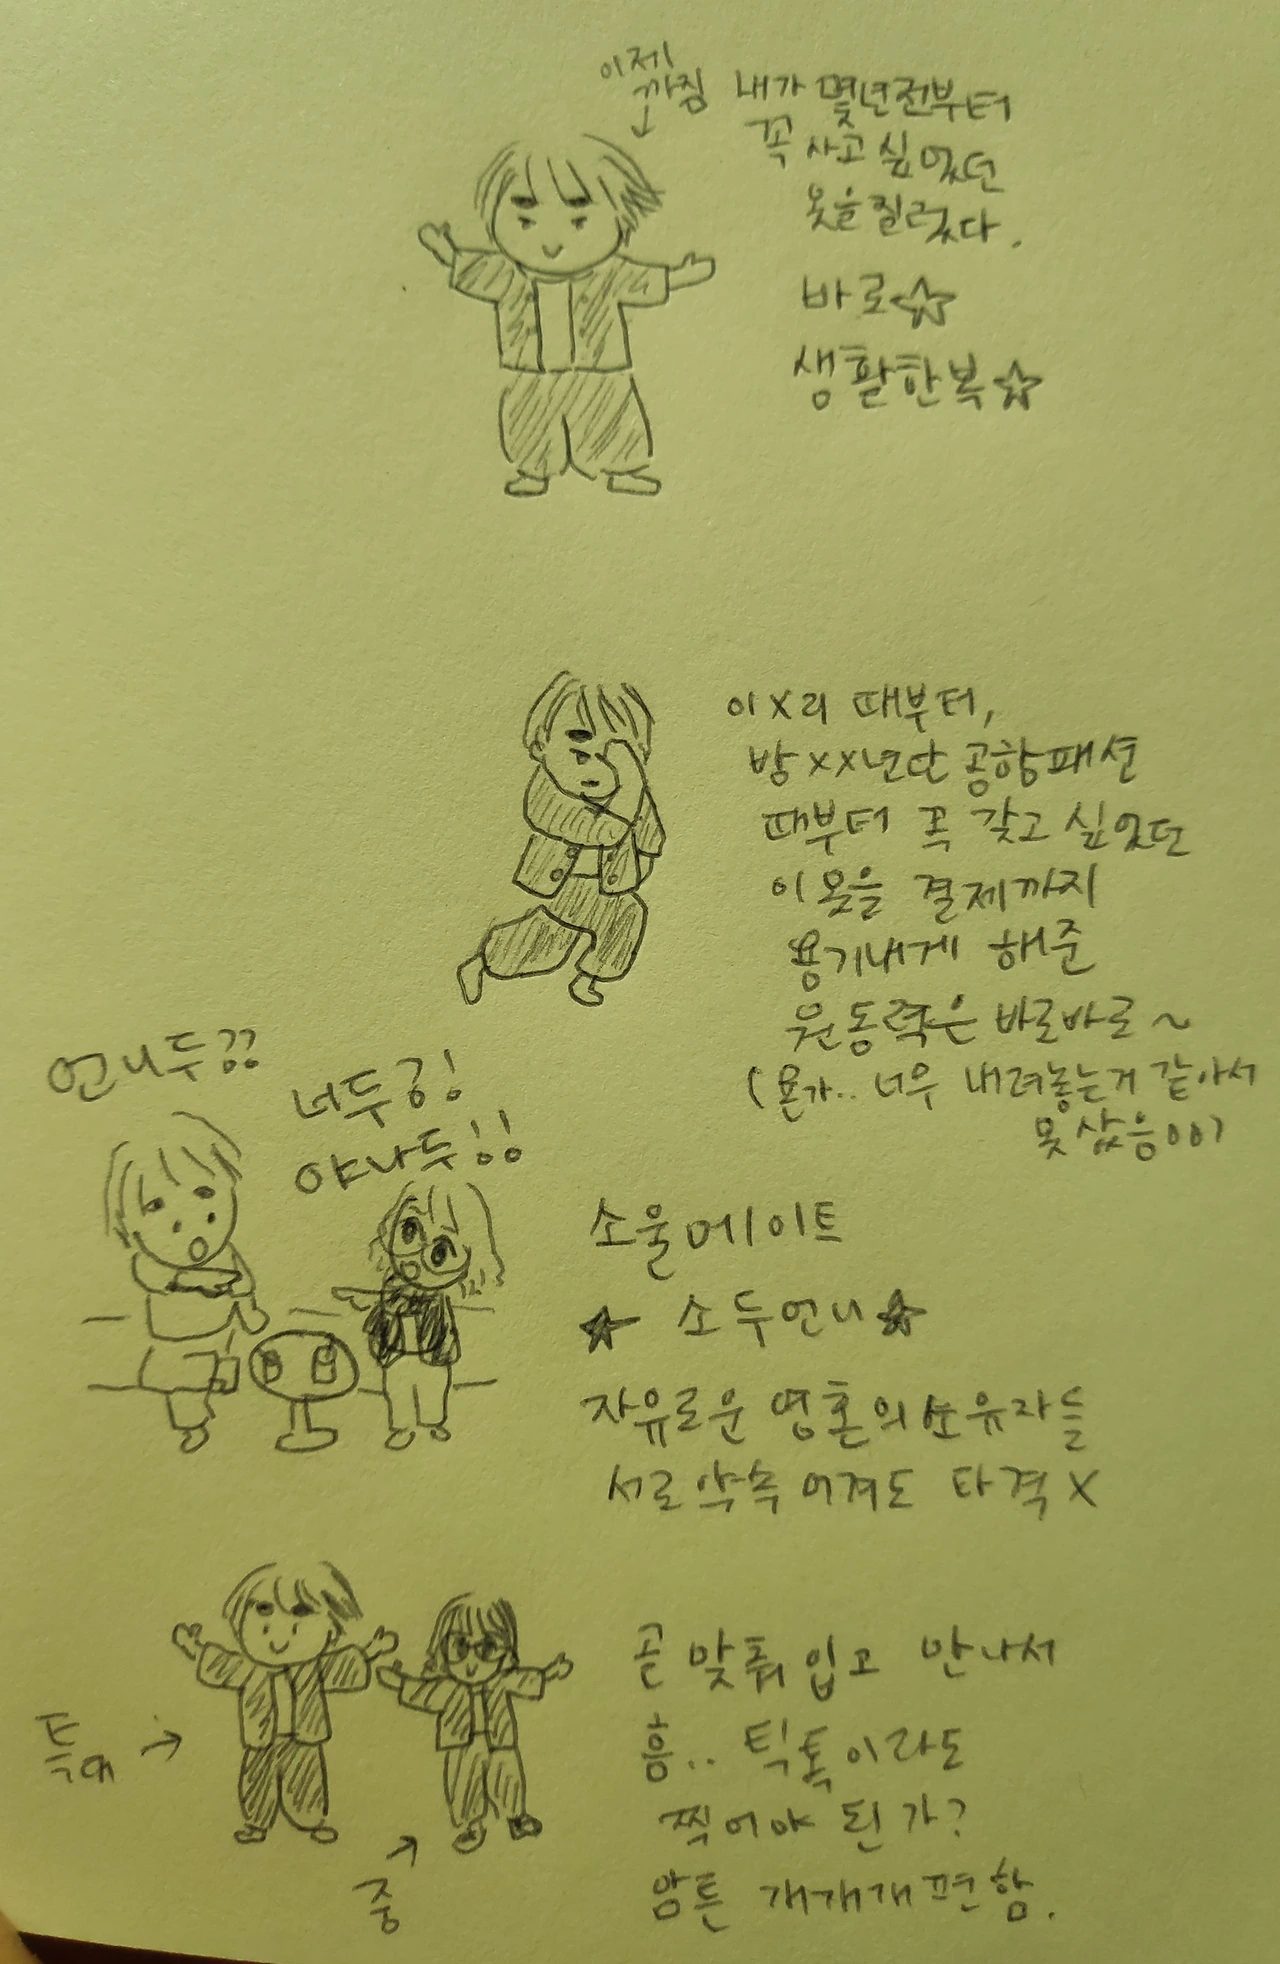 이제
까짐
내가 몇년전부터
꼭 사고 싶었던
옷을 질렀다.
바로☆
생활한복☆
이X리 때부터,
방XX년단 공항패션
때부터 꼭 갖고 싶었던
이 옷을 결제까지
용기내게 해준
원동력은 바로바로~
(욘가.. 너무 내려놓는거 같아서
못샀음ㅇㅇ)
언니두??
너두?!
야나두!!
소울메이트
★ 소두언니★
자유로운 영혼의 소유자들
서로 약속 어겨도 타격X
특대 →
중
골 맞춰 입고 만나서
흠.. 틱톡이라도
찍어야 된가?
암튼 개개개편함.